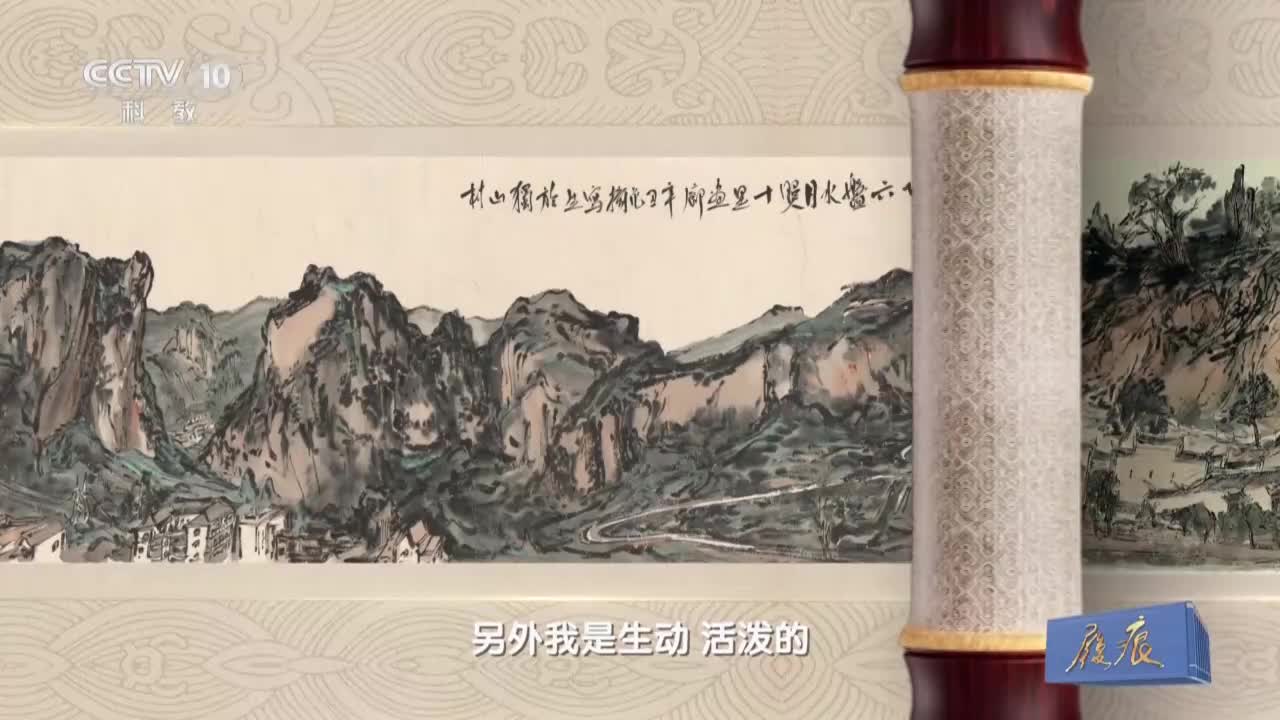 CCTV 10
科教
六盤水月十里畫廊辛丑寫於獨山村
另外我是生动 活泼的
履痕